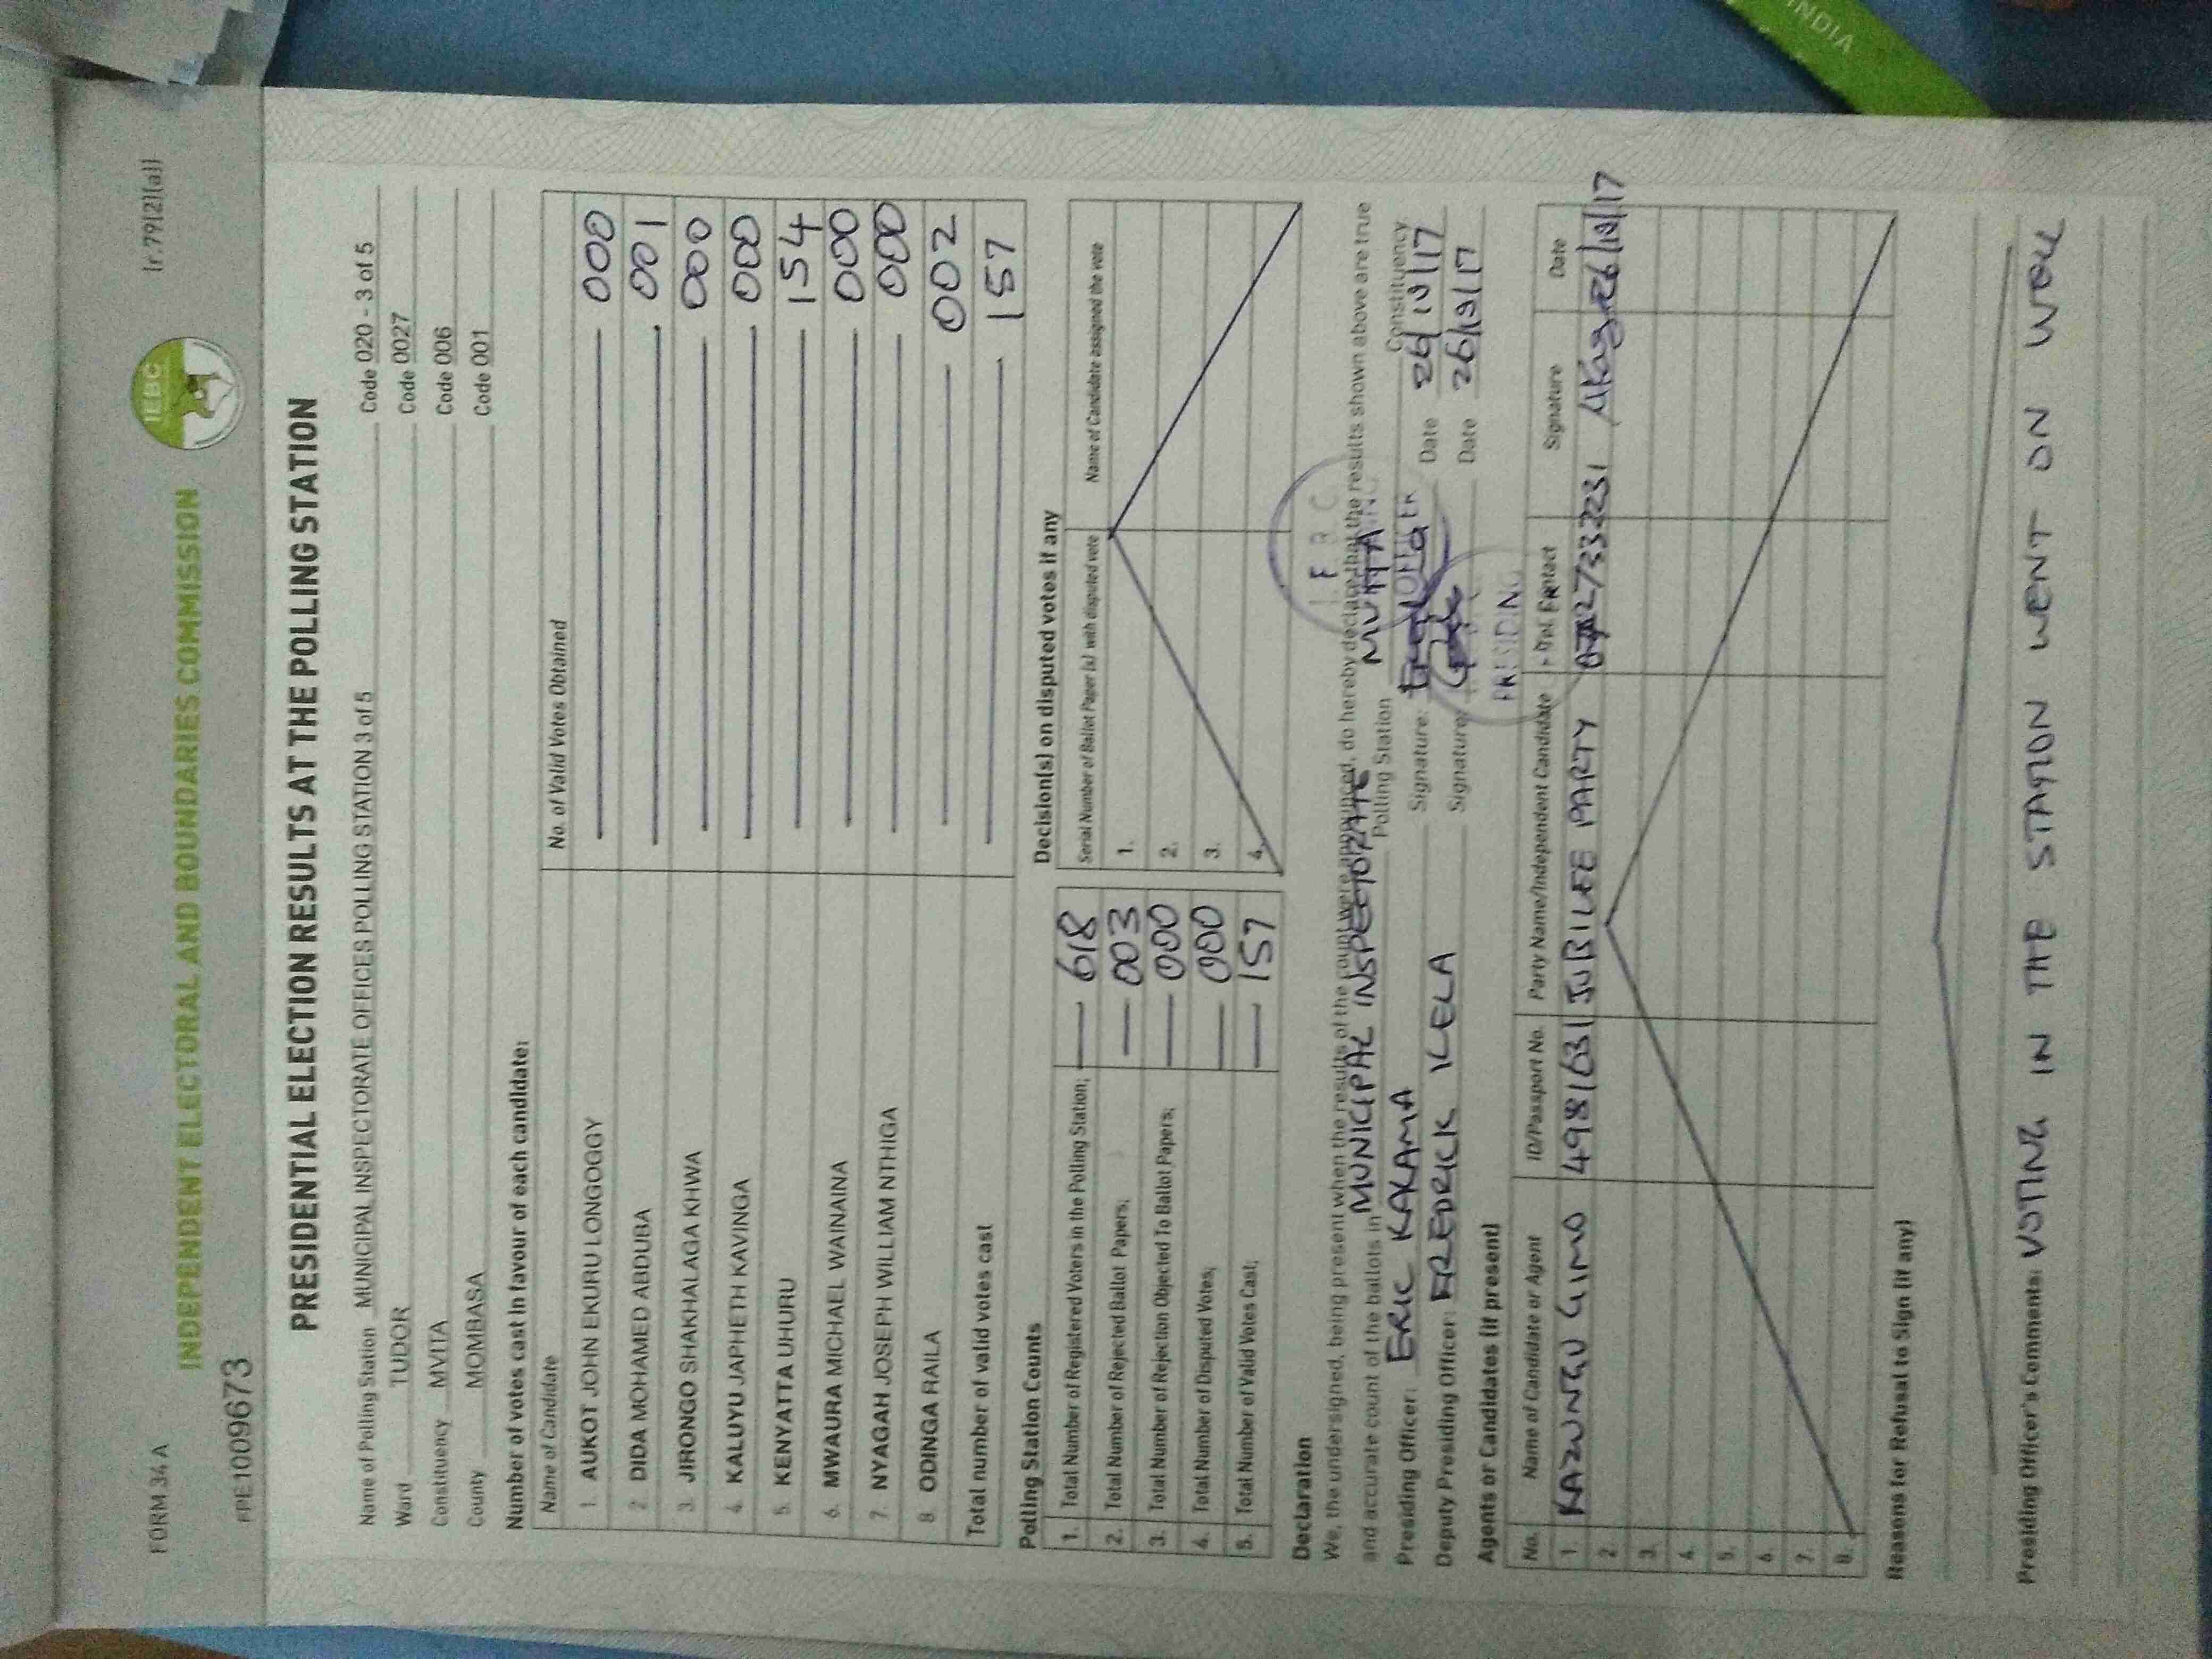 FORM 34 A
[r.79(2)(a)]
INDEPENDENT ELECTORAL AND BOUNDARIES COMMISSION
IEBC
PRE1009673
PRESIDENTIAL ELECTION RESULTS AT THE POLLING STATION
Name of Polling Station MUNICIPAL INSPECTORATE OFFICES POLLING STATION 3 of 5 Code 020 - 3 of 5
Ward TUDOR Code 0027
Constituency MVITA Code 006
County MOMBASA Code 001
Number of votes cast in favour of each candidate:
Name of Candidate No. of Valid Votes Obtained
1. AUKOT JOHN EKURU LONGOGGY 000
2. DIDA MOHAMED ABDUBA 001
3. JIRONGO SHAKHALAGA KHWA 000
4. KALUYU JAPHETH KAVINGA 000
5. KENYATTA UHURU 154
6. MWAURA MICHAEL WAINAINA 000
7. NYAGAH JOSEPH WILLIAM NTHIGA 000
8. ODINGA RAILA 002
Total number of valid votes cast 157
Polling Station Counts
1. Total Number of Registered Voters in the Polling Station; 618
2. Total Number of Rejected Ballot Papers; 003
3. Total Number of Rejection Objected To Ballot Papers; 000
4. Total Number of Disputed Votes; 000
5. Total Number of Valid Votes Cast; 157
Decision(s) on disputed votes if any
Serial Number of Ballot Paper (s) with disputed vote Name of Candidate assigned the vote
1.
2.
3.
4.
Declaration
We, the undersigned, being present when the results of the count were announced, do hereby declare that the results shown above are true
and accurate count of the ballots in MUNICIPAL INSPECTORATE Polling Station MVITA Constituency
Presiding Officer: ERIC KALAMA Signature: Date 26/10/17
Deputy Presiding Officer: FREDRICK ILELA Signature: Date 26/10/17
IEBC
PRESIDING
Agents or Candidates (if present)
No. Name of Candidate or Agent ID/Passport No. Party Name/Independent Candidate Signature Date
1. KAZUNGU GIMO 4981631 JUBILEE PARTY 26/10/17
2.
3.
4.
5.
6.
7.
8.
Reasons for Refusal to Sign (if any)
Presiding Officer's Comments: VOTING IN THE STATION WENT ON WELL
INDIA